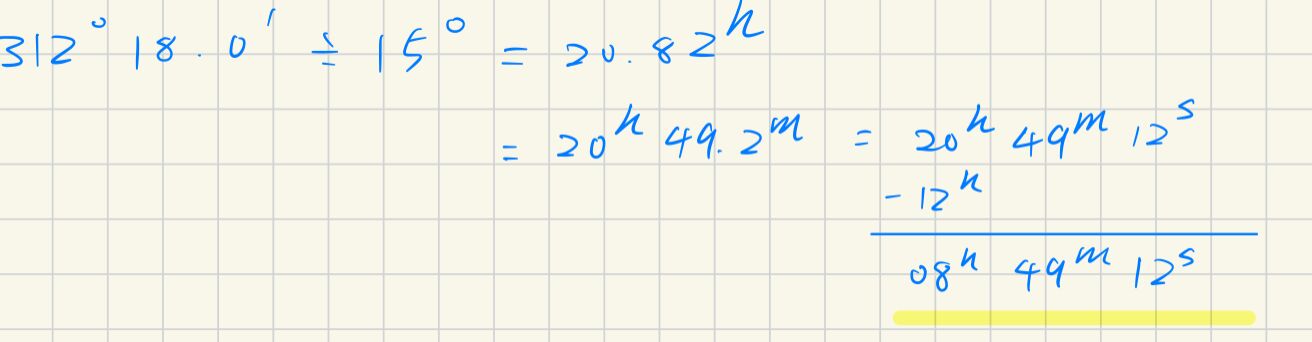 312° 18.0′ ÷ 15° = 20.82ʰ
= 20ʰ 49.2ᵐ = 20ʰ 49ᵐ 12ˢ
- 12ʰ
08ʰ 49ᵐ 12ˢ